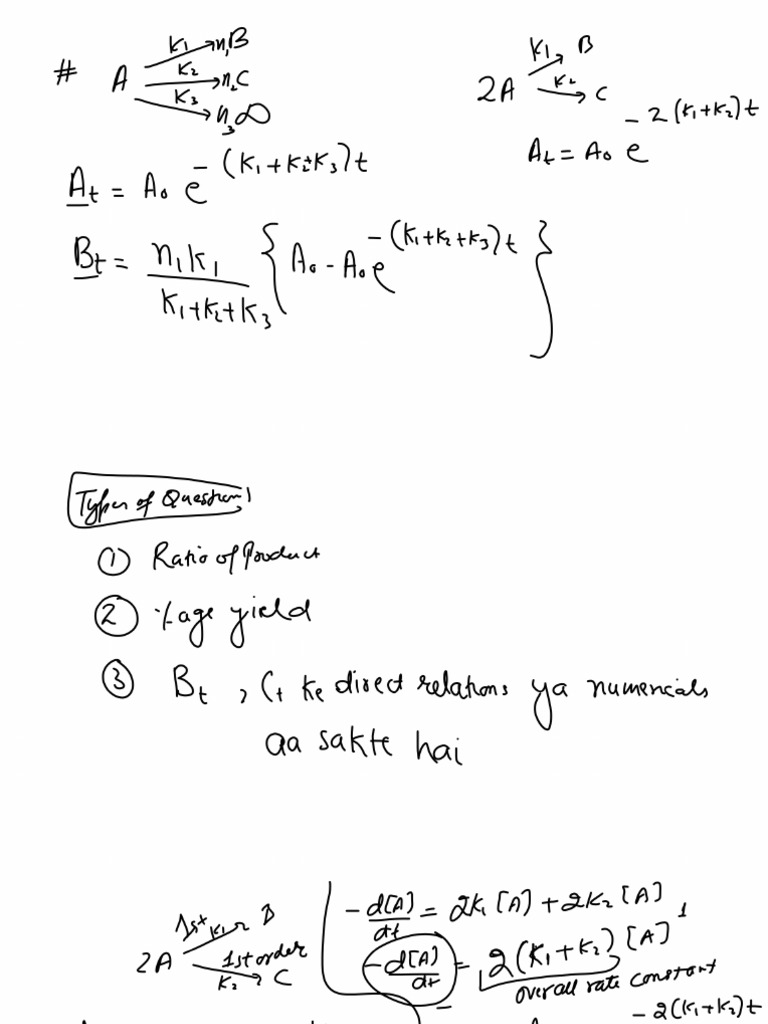 # A K₁→ n₁B
K₂→ n₂C
K₃→ n₃D
2A K₁→ B
K₂→ C
A_t = A₀ e^-(K₁+K₂+K₃)t
A_t = A₀ e^-2(K₁+K₂)t
B_t = n₁K₁ / K₁+K₂+K₃ { A₀ - A₀e^-(K₁+K₂+K₃)t }
Types of Question
① Ratio of Product
② %age yield
③ B_t, C_t ke direct relations ya numericals
aa sakte hai
2A 1st K₁→ B
1st order K₂→ C
-d[A]/dt = 2K₁[A] + 2K₂[A]
-d[A]/dt = 2(K₁+K₂)[A]¹
overall rate constant
-2(K₁+K₂)t